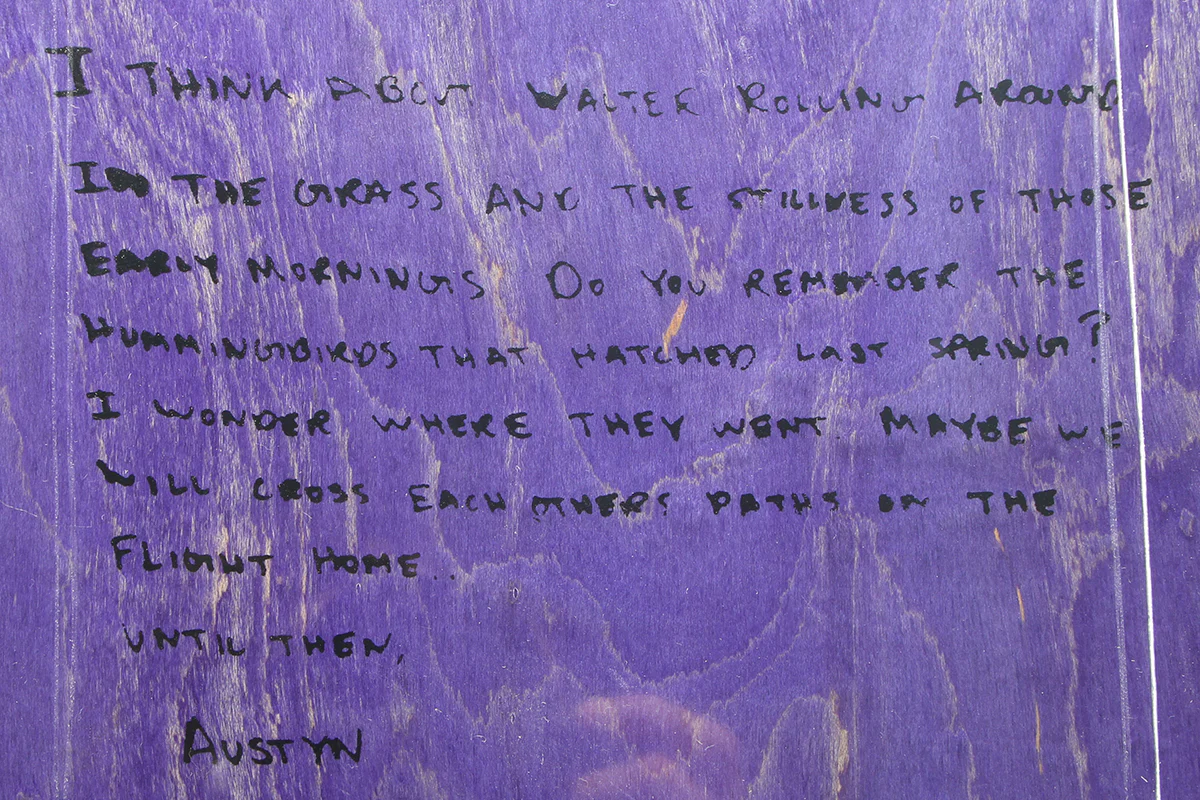 I THINK ABOUT WALTER ROLLING AROUND
IN THE GRASS AND THE STILLNESS OF THOSE
EARLY MORNINGS DO YOU REMEMBER THE
HUMMINGBIRDS THAT HATCHED LAST SPRING?
I WONDER WHERE THEY WENT. MAYBE WE
WILL CROSS EACH OTHERS PATHS ON THE
FLIGHT HOME..
UNTIL THEN,
AUSTYN